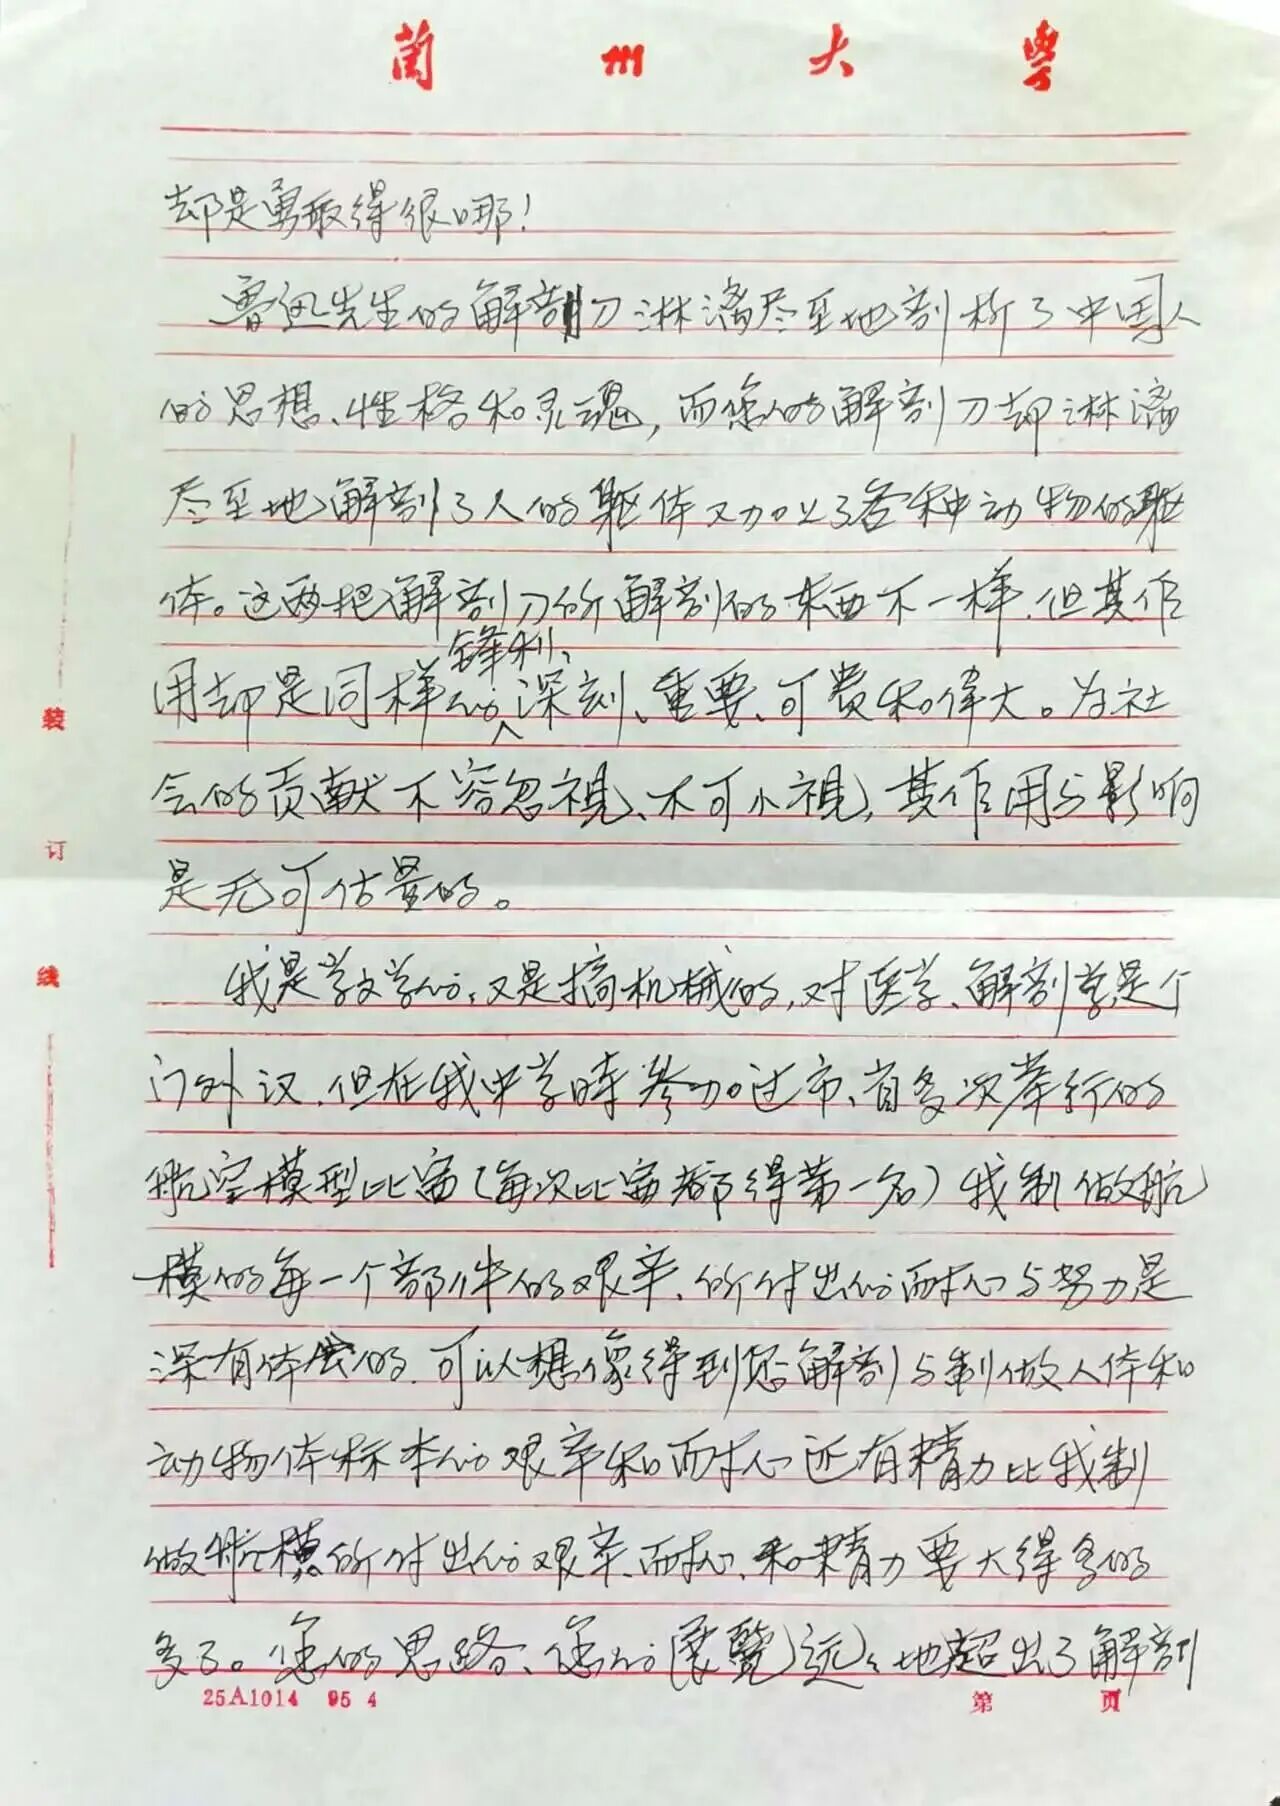 蘭州大學
却是勇敢得很哪！
鲁迅先生的解剖刀淋漓尽至地剖析了中国人
的思想、性格和灵魂，而您的解剖刀却淋漓
尽至地解剖了人的躯体又加上了各种动物的躯
体。这两把解剖刀所解剖的东西不一样，但其作
锋利、
用却是同样的深刻、重要、可贵和偉大。为社
会的贡献不容忽視、不可小視，其作用与影响
是无可估量的。
我是学文学的，又是搞机械的，对医学、解剖学是个
门外汉，但在我中学時参加过市、省多次举行的
航空模型比赛（每次比赛都得第一名）我制做航
模的每一个部件的艰辛、所付出的耐心与努力是
深有体会的，可以想像得到您解剖与制做人体和
动物体标本的艰辛和耐心还有精力比我制
做航模所付出的艰辛、耐心、和精力要大得多的
多了。您的思路、您的展覽远远地超出了解剖
装
订
线
25A1014 95 4
第 页